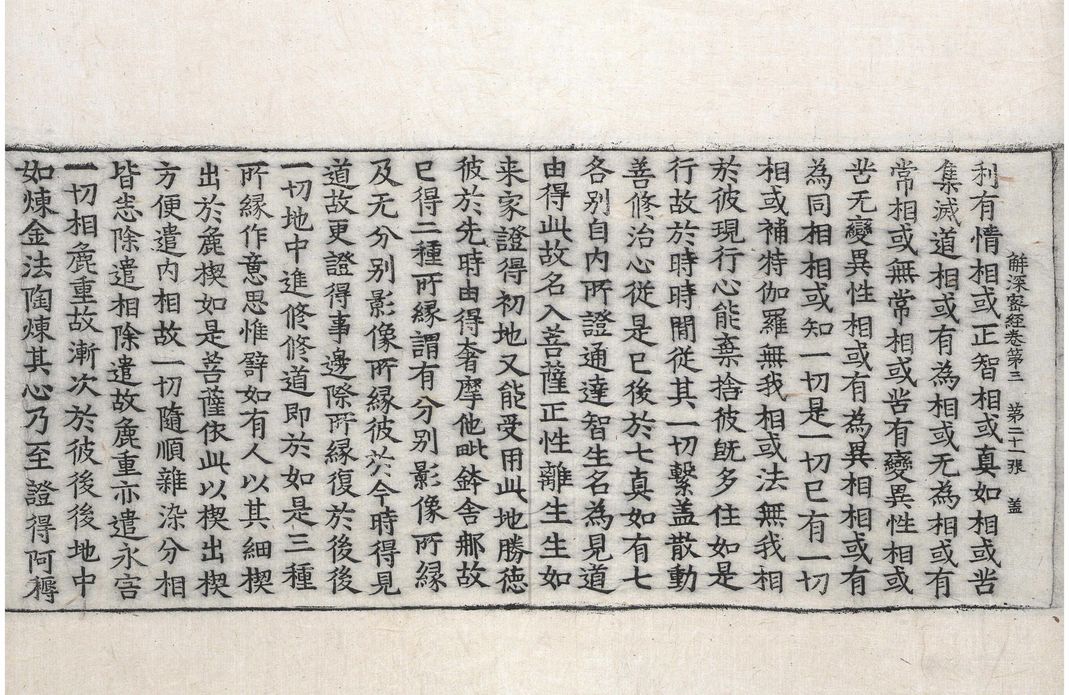 解深密經卷第三 第二十一張 盖
利有情相或正智相或真如相或苦
集滅道相或有為相或无為相或有
常相或無常相或苦有變異性相或
苦无變異性相或有為異相相或有
為同相相或知一切是一切已有一切
相或補特伽羅無我相或法無我相
於彼現行心能棄捨彼既多住如是
行故於時時閒從其一切繫盖散動
善修治心從是已後於七真如有七
各別自內所證通達智生名為見道
由得此故名入菩薩正性離生生如
来家證得初地又能受用此地勝德
彼於先時由得奢摩他毗鉢舍那故
已得二種所緣謂有分別影像所緣
及无分別影像所緣彼於今時得見
道故更證得事邊際所緣復於後後
一切地中進修修道即於如是三種
所緣作意思惟譬如有人以其細楔
出於麁楔如是菩薩依此以楔出楔
方便遣內相故一切隨順雜染分相
皆悉除遣相除遣故麁重亦遣永害
一切相麁重故漸次於彼後後地中
如煉金法陶煉其心乃至證得阿耨